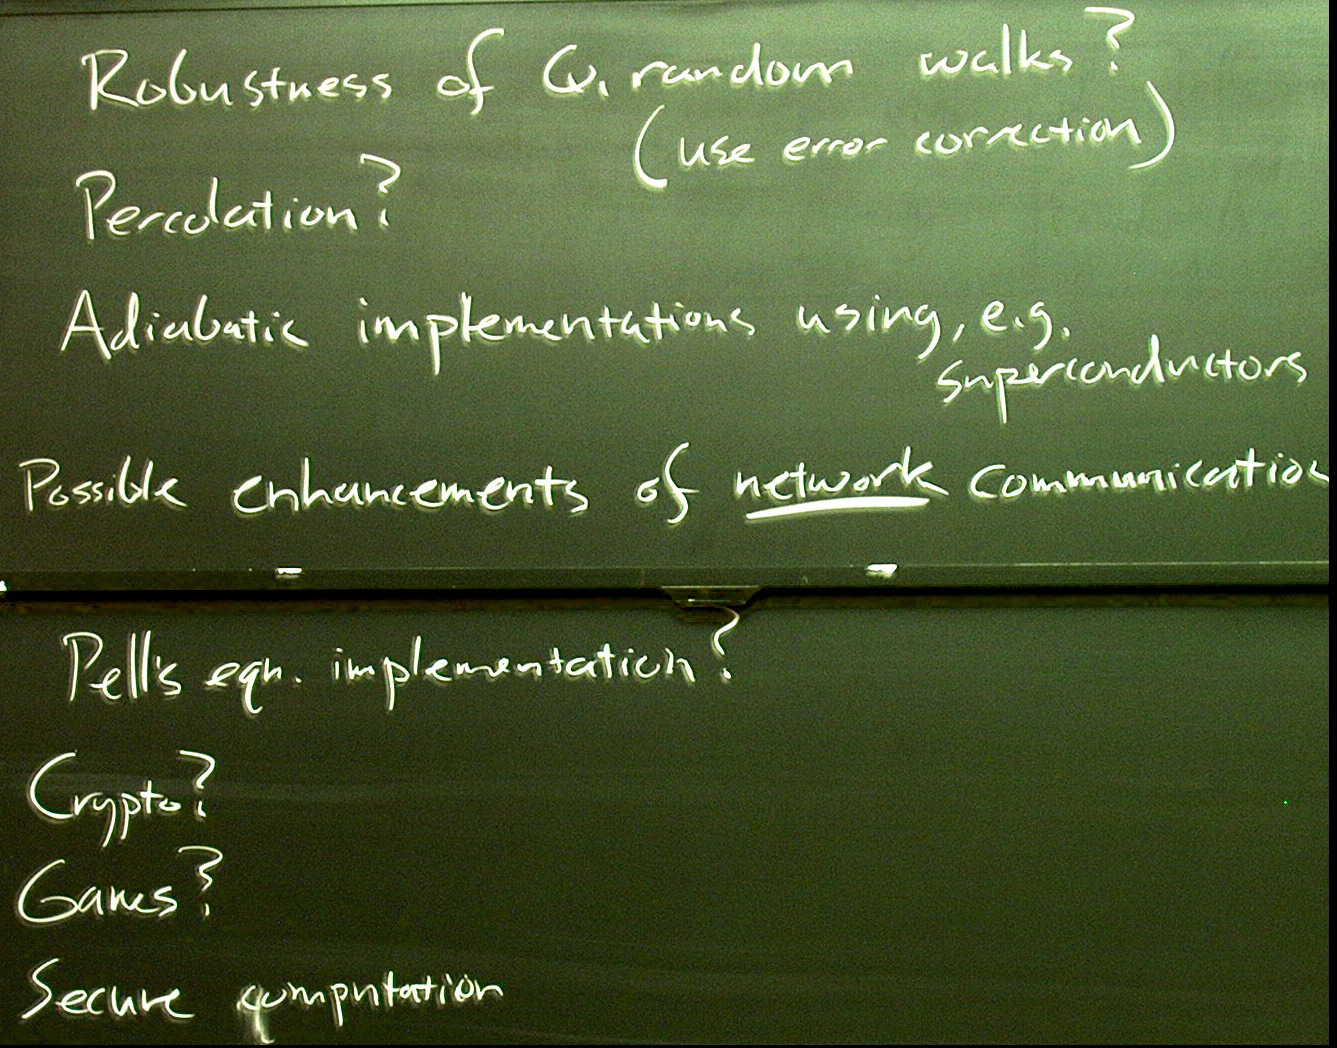 Robustness of Q. random walks?
(use error correction)
Percolation?
Adiabatic implementations using, e.g.
superconductors
Possible enhancements of network communication
Pell's eqn. implementation?
Crypto?
Games?
Secure computation